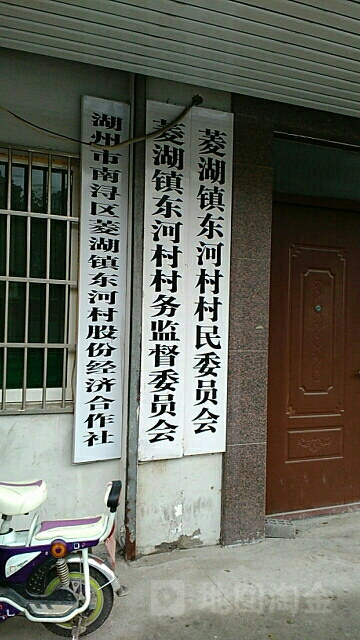 菱湖镇东河村村民委员会
菱湖镇东河村村务监督委员会
湖州市南浔区菱湖镇东河村股份经济合作社
地图淘金